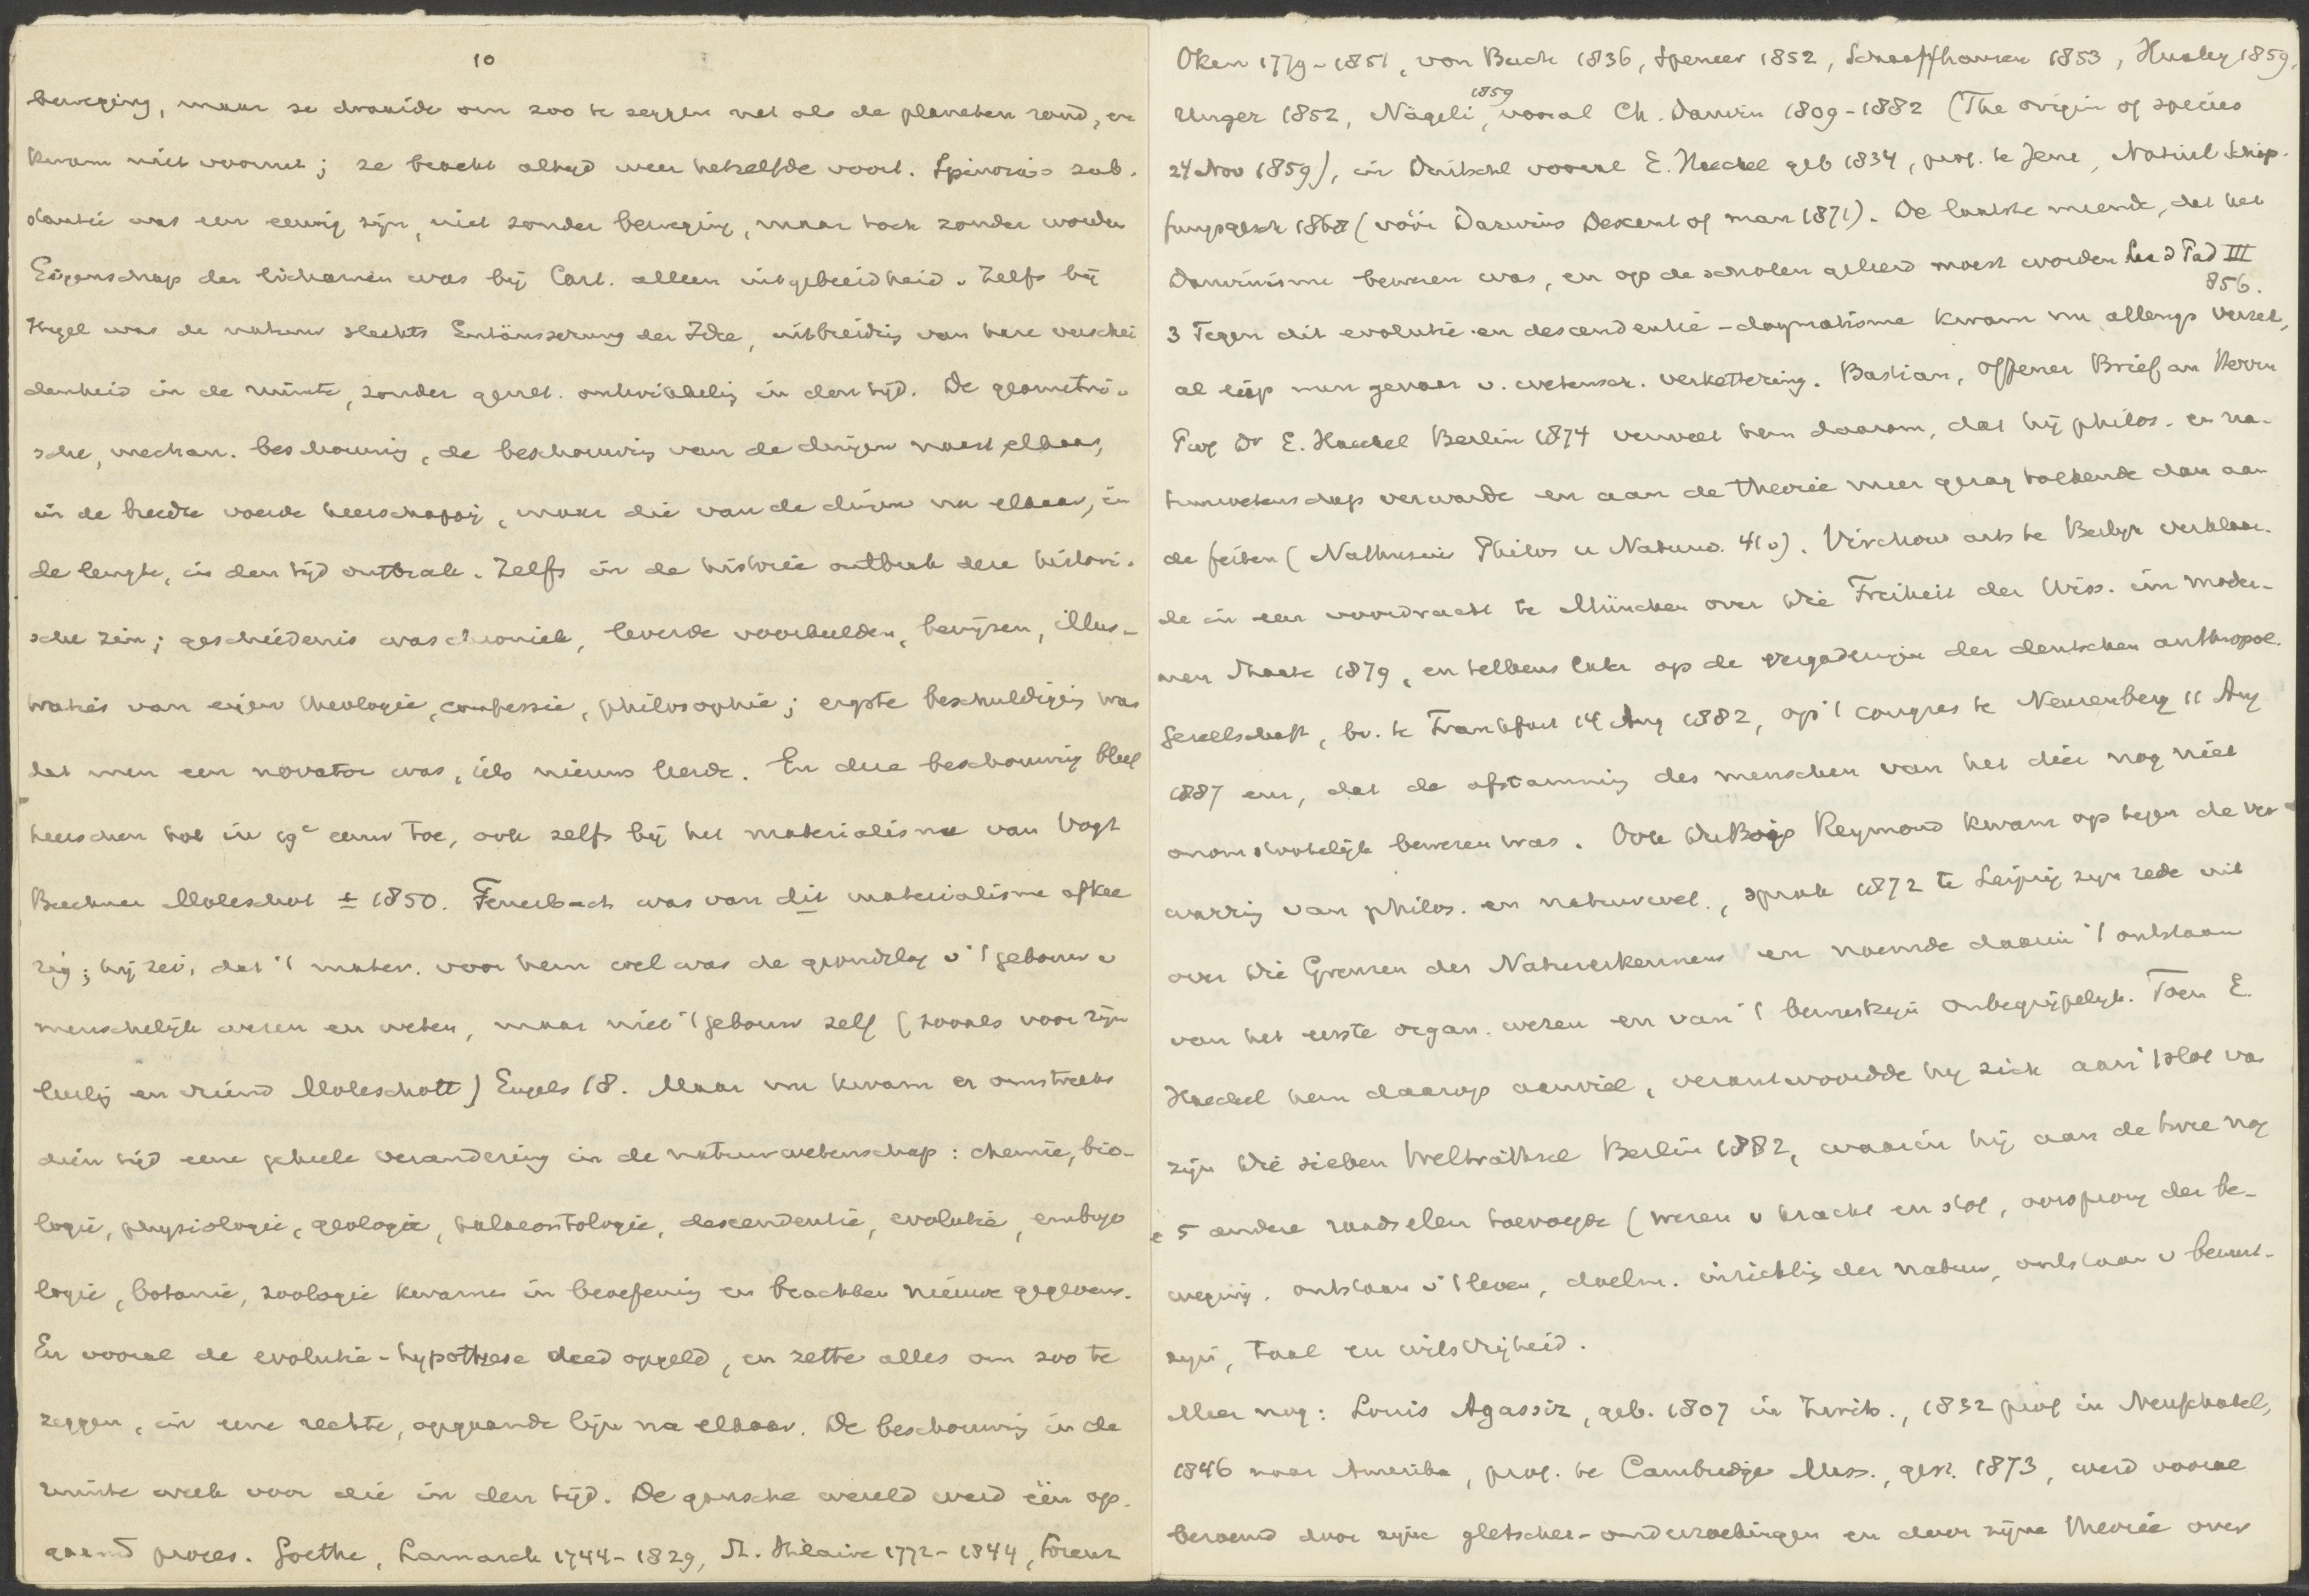 10
beweging, maar ze draaide om zoo te zeggen net als de planeten rond, en
kwam niet vooruit; ze bracht altijd weer hetzelfde voort. Spinoza's sub-
stantie was een eeuwig zijn, niet zonder beweging, maar toch zonder worden
Eigenschap der lichamen was bij Cart. alleen uitgebreidheid. Zelfs bij
Hegel was de natuur slechts Entäusserung der Idee, uitbreiding van hare verschei
denheid in de ruimte, zonder gevolg. ontwikkeling in den tijd. De geometri-
sche, mechan. beschouwing, de beschouwing van de dingen naast elkaar,
in de breedte voerde heerschappij, maar die van de dingen na elkaar, in
de lengte, in den tijd ontbrak. Zelfs in de historie ontbrak deze histori-
sche zin; geschiedenis was chroniek, leverde voorbeelden, bewijzen, illus-
traties van eigen theologie, confessie, philosophie; ergste beschuldiging was
dat men een novator was, iets nieuws leerde. En deze beschouwing bleef
heerschen tot in 19e eeuw toe, ook zelfs bij het materialisme van Vogt
Buchner Moleschot ± 1850. Feuerbach was van dit materialisme afkee
rig; hij zei, dat 't mater. voor hem wel was de grondslag v 't gebouw v
menschelijk wezen en weten, maar niet 't gebouw zelf (zooals voor zijn
leerlg en vriend Moleschott) Engels 18. Maar nu kwam er omstreeks
dien tijd eene geheele verandering in de natuurwetenschap: chemie, bio-
logie, physiologie, geologie, palaeontologie, descendentie, evolutie, embryo
logie, botanie, zoologie kwamen in beoefening en brachten nieuwe gegevens.
En vooral de evolutie-hypothese deed opgeld, en zette alles om zoo te
zeggen, in eene rechte, opgaande lijn na elkaar. De beschouwing in de
ruimte week voor die in den tijd. De gansche wereld werd één op-
gaand proces. Goethe, Lamarck 1744-1829, St. Hilaire 1772-1844, Lorenz
Oken 1779-1851, von Buch 1836, Spencer 1852, Schaaffhausen 1853, Huxley 1859,
Unger 1852, Nägeli 1859, vooral Ch. Darwin 1809-1882 (The origin of species
24 Nov 1859), in Duitschl vooral E. Haeckel geb 1834, prof. te Jena, Natürl Schöp-
fungsgesch 1868 (vóór Darwins Descent of man 1871). De laatste meende, dat het
Darwinisme bewezen was, en op de scholen geleerd moest worden
856.
3 Tegen dit evolutie- en descendentie-dogmatisme kwam nu allengs verzet,
al liep men gevaar v. wetensch. verkettering. Bastian, Offener Brief an Herrn
Prof Dr E. Haeckel Berlin 1874 verweet hem daarom, dat hij philos. en na-
tuurwetenschap verwarde en aan de theorie meer gezag toekende dan aan
de feiten (Nathusius Philos u Naturw. 410). Virchow arts te Berlijn verklaar-
de in een voordracht te München over Die Freiheit der Wiss. im moder-
nen Staate 1879, en telkens later op de vergaderingen der deutschen anthropol.
Gesellschaft, bv. te Frankfurt 14 Aug 1882, op 't congres te Neurenberg 11 Aug
1887 enz, dat de afstamming des menschen van het dier nog niet
onomstootelijk bewezen was. Ook DuBois Reymond kwam op tegen de ver-
warring van philos. en natuurwet., sprak 1872 te Leipzig zijn rede uit
over Die Grenzen des Naturerkennens en noemde daarin 't ontstaan
van het eerste organ. wezen en van 't bewustzijn onbegrijpelijk. Toen E.
Haeckel hem daarop aanviel, verantwoordde hij zich aan 't slot van
zijn Die sieben Welträthsel Berlin 1882, waarin hij aan de twee nog
5 andere raadselen toevoegde (wezen v kracht en stof, oorsprong der be-
weging, ontstaan v 't leven, doelm. inrichting der natuur, ontstaan v bewust-
zijn, taal en wilsvrijheid.
Meer nog: Louis Agassiz, geb. 1807 in Zwits., 1832 prof in Neufchatel,
1846 naar Amerika, prof. te Cambridge Mass., gest. 1873, werd vooral
beroemd door zijne gletscher-onderzoekingen en door zijne theorie over